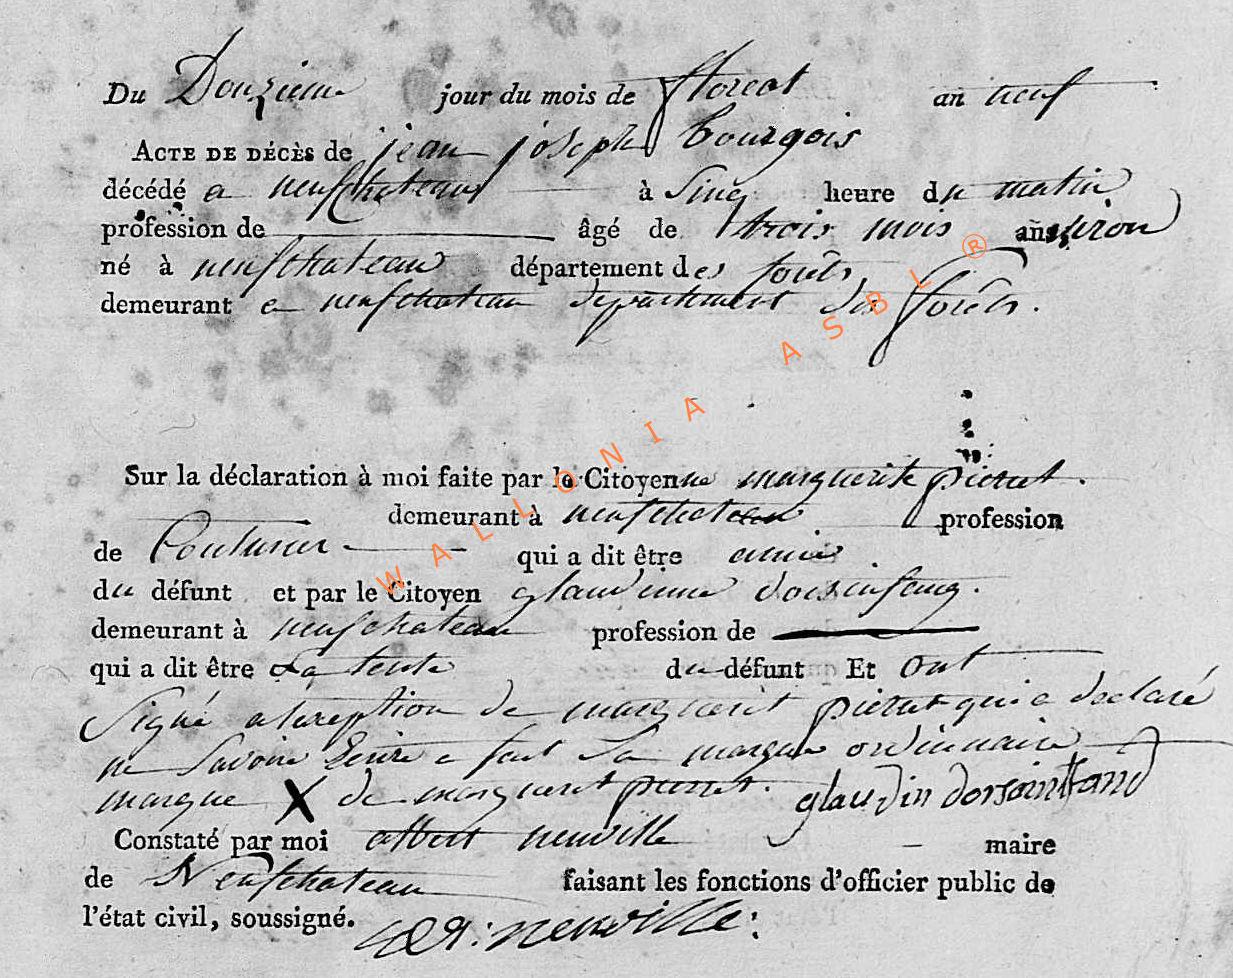 Du Douzieme jour du mois de floreal an neuf
ACTE DE DÉCÈS de jean joseph bourgois
décédé a neufchateau à Sinq heure du matin
profession de âgé de trois mois ans
né à neufchateau département des forêts
demeurant a neufchateau departement des forêts.
Sur la déclaration à moi faite par le Citoyenne marguerite pierret.
demeurant à neufchateau profession
de Couturier qui a dit être amie
du défunt et par le Citoyen glaudinne
demeurant à neufchateau profession de
qui a dit être La tente du défunt Et Ont
Signé a lexeption de marguerit pierret qui a declaré
ne Savoire Ecrire a fait Sa marque ordinnaire
marque X de marguerit pierret. glaudin
Constaté par moi albert neuville maire
de Neufchateau faisant les fonctions d'officier public de
l'état civil, soussigné. neuville
WALLONIA ASBL ®